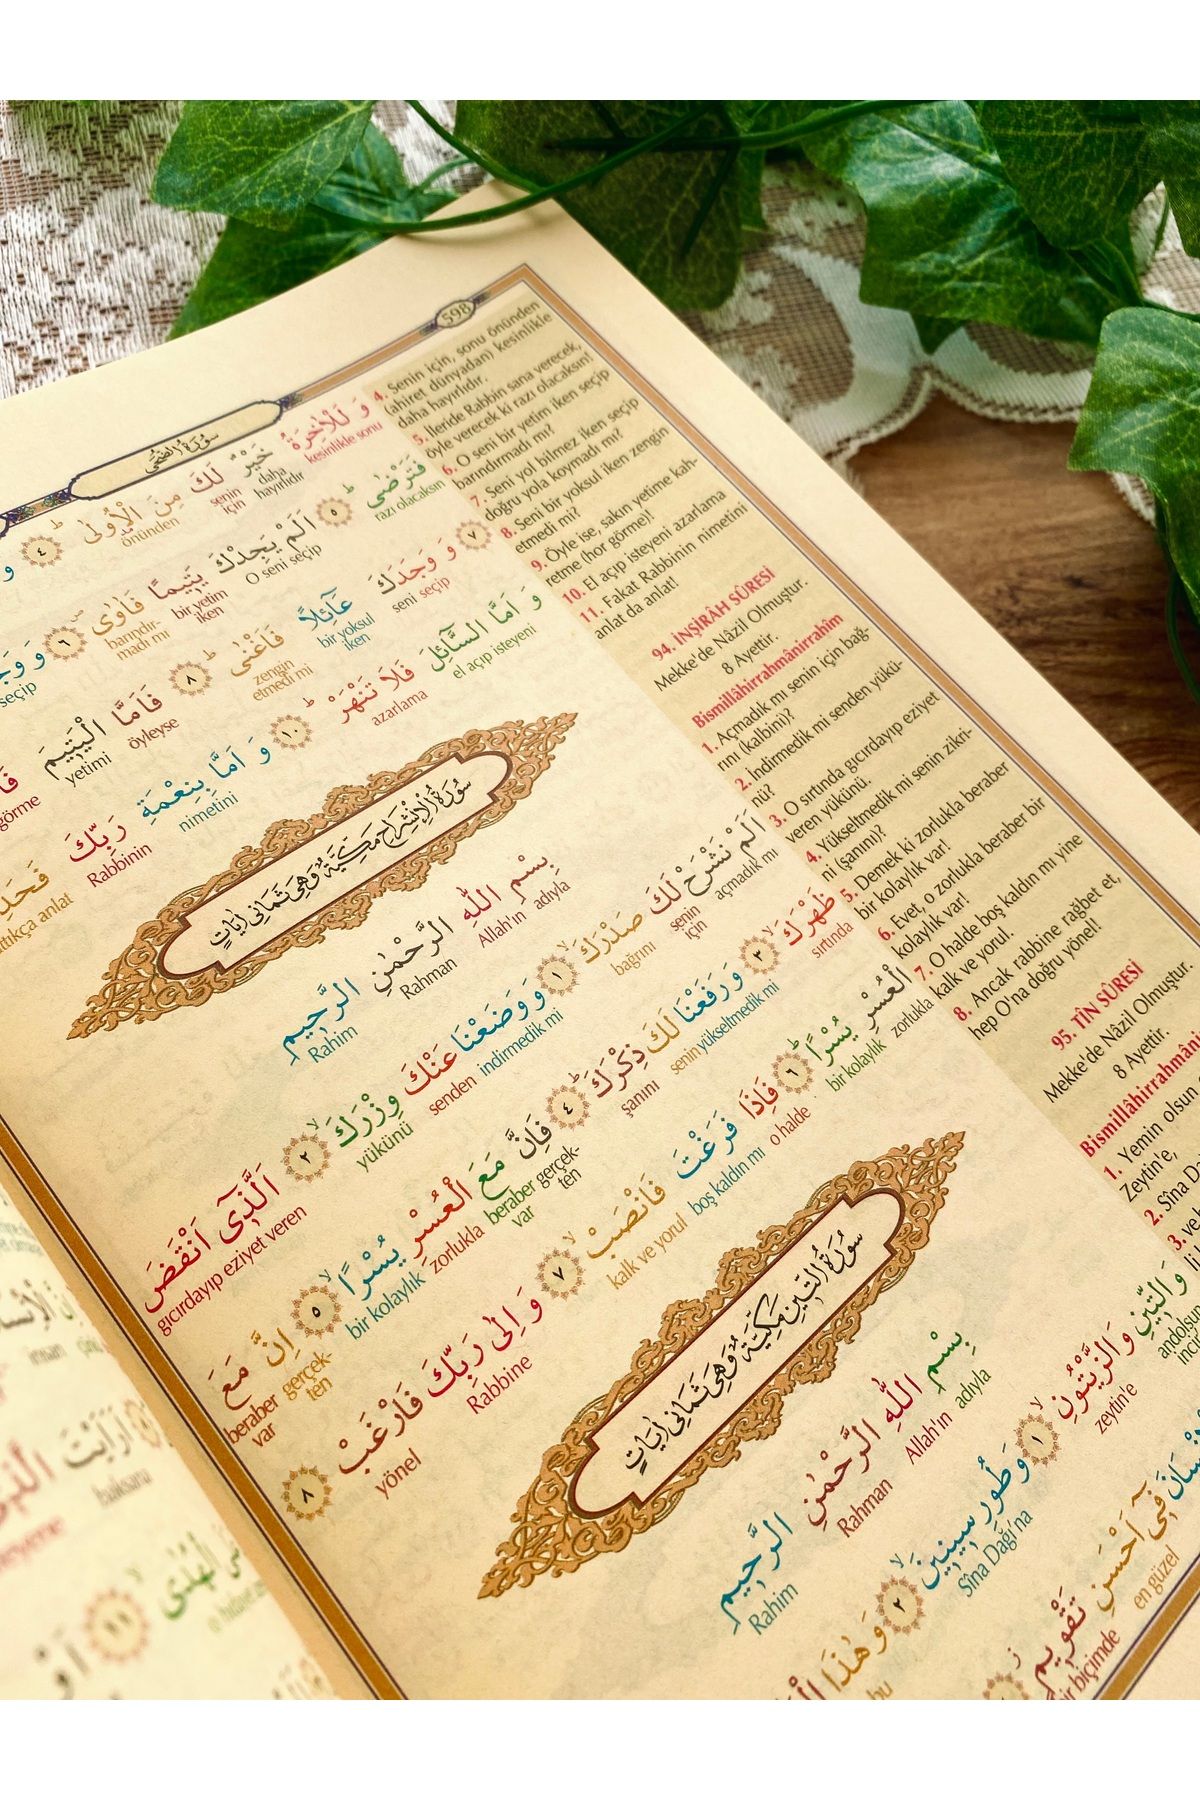 598
سُورَةُ الضُّحٰى
وَ لَلْاٰخِرَةُ خَيْرٌ لَكَ مِنَ الْاُولٰى ٤ وَ
kesinlikle sonu daha hayırlıdır senin için önünden
فَتَرْضٰى ٥ اَلَمْ يَجِدْكَ يَت۪يمًا فَاٰوٰى ٦ وَ
razı olacaksın O seni seçip bir yetim iken barındırmadı mı seçip
٧ وَ وَجَدَكَ عَٓائِلًا فَاَغْنٰى ٨ فَاَمَّا الْيَت۪يمَ
seni seçip bir yoksul iken zengin etmedi mi öyleyse yetimi görme
وَ اَمَّا السَّٓائِلَ فَلَا تَنْهَرْ ١٠ وَ اَمَّا بِنِعْمَةِ رَبِّكَ
el açıp isteyeni azarlama nimetini Rabbinin anlat
سُورَةُ الْاِنْشِرَاحِ مَكِّيَّةٌ وَهِيَ ثَمَانِيَ اٰيَاتٍ
بِسْمِ اللّٰهِ الرَّحْمٰنِ الرَّح۪يمِ
adıyla Allah'ın Rahman Rahim
اَلَمْ نَشْرَحْ لَكَ صَدْرَكَ ١ وَ وَضَعْنَا عَنْكَ وِزْرَكَ ٢ اَلَّذ۪ٓى اَنْقَضَ
açmadık mı senin için bağrını indirmedik mi senden yükünü gıcırdayıp eziyet veren
ظَهْرَكَ ٣ وَ رَفَعْنَا لَكَ ذِكْرَكَ ٤ فَاِنَّ مَعَ الْعُسْرِ يُسْرًا ٥ اِنَّ مَعَ
sırtında yükseltmedik mi senin şanını gerçekten beraber var zorlukla bir kolaylık gerçekten beraber var
الْعُسْرِ يُسْرًا ٦ فَاِذَا فَرَغْتَ فَانْصَبْ ٧ وَ اِلٰى رَبِّكَ فَارْغَبْ ٨
zorlukla bir kolaylık o halde boş kaldın mı kalk ve yorul Rabbine yönel
سُورَةُ التّ۪ينِ مَكِّيَّةٌ وَهِيَ ثَمَانِيَ اٰيَاتٍ
بِسْمِ اللّٰهِ الرَّحْمٰنِ الرَّح۪يمِ
adıyla Allah'ın Rahman Rahim
وَالتّ۪ينِ وَ الزَّيْتُونِ ١ وَ طُورِ س۪ين۪ينَ ٢ وَ هٰذَا
zeytin'e Sîna Dağı'na bu
ف۪ٓى اَحْسَنِ تَقْو۪يمٍ
en güzel
4. Senin için, sonu önünden
(ahiret dünyadan) kesinlikle
daha hayırlıdır.
5. İleride Rabbin sana verecek,
öyle verecek ki razı olacaksın!
6. O seni bir yetim iken seçip
barındırmadı mı?
7. Seni yol bilmez iken seçip
doğru yola koymadı mı?
8. Seni bir yoksul iken zengin
etmedi mi?
9. Öyle ise, sakın yetime kah-
retme (hor görme)!
10. El açıp isteyeni azarlama
11. Fakat Rabbinin nimetini
anlat da anlat!
94. İNŞİRÂH SÛRESİ
Mekke'de Nâzil Olmuştur.
8 Ayettir.
Bismillâhirrahmânirrahîm
1. Açmadık mı senin için bağ-
rını (kalbini)?
2. İndirmedik mi senden yükü-
nü?
3. O sırtında gıcırdayıp eziyet
veren yükünü.
4. Yükseltmedik mi senin zikri-
ni (şanını)?
5. Demek ki zorlukla beraber
bir kolaylık var!
6. Evet, o zorlukla beraber bir
kolaylık var!
7. O halde boş kaldın mı yine
kalk ve yorul.
8. Ancak rabbine rağbet et,
hep O'na doğru yönel!
95. TÎN SÛRESİ
Mekke'de Nâzil Olmuştur.
8 Ayettir.
Bismillâhirrahmâni
1. Yemin olsun
Zeytin'e,
2. Sîna
3. ve
baksana